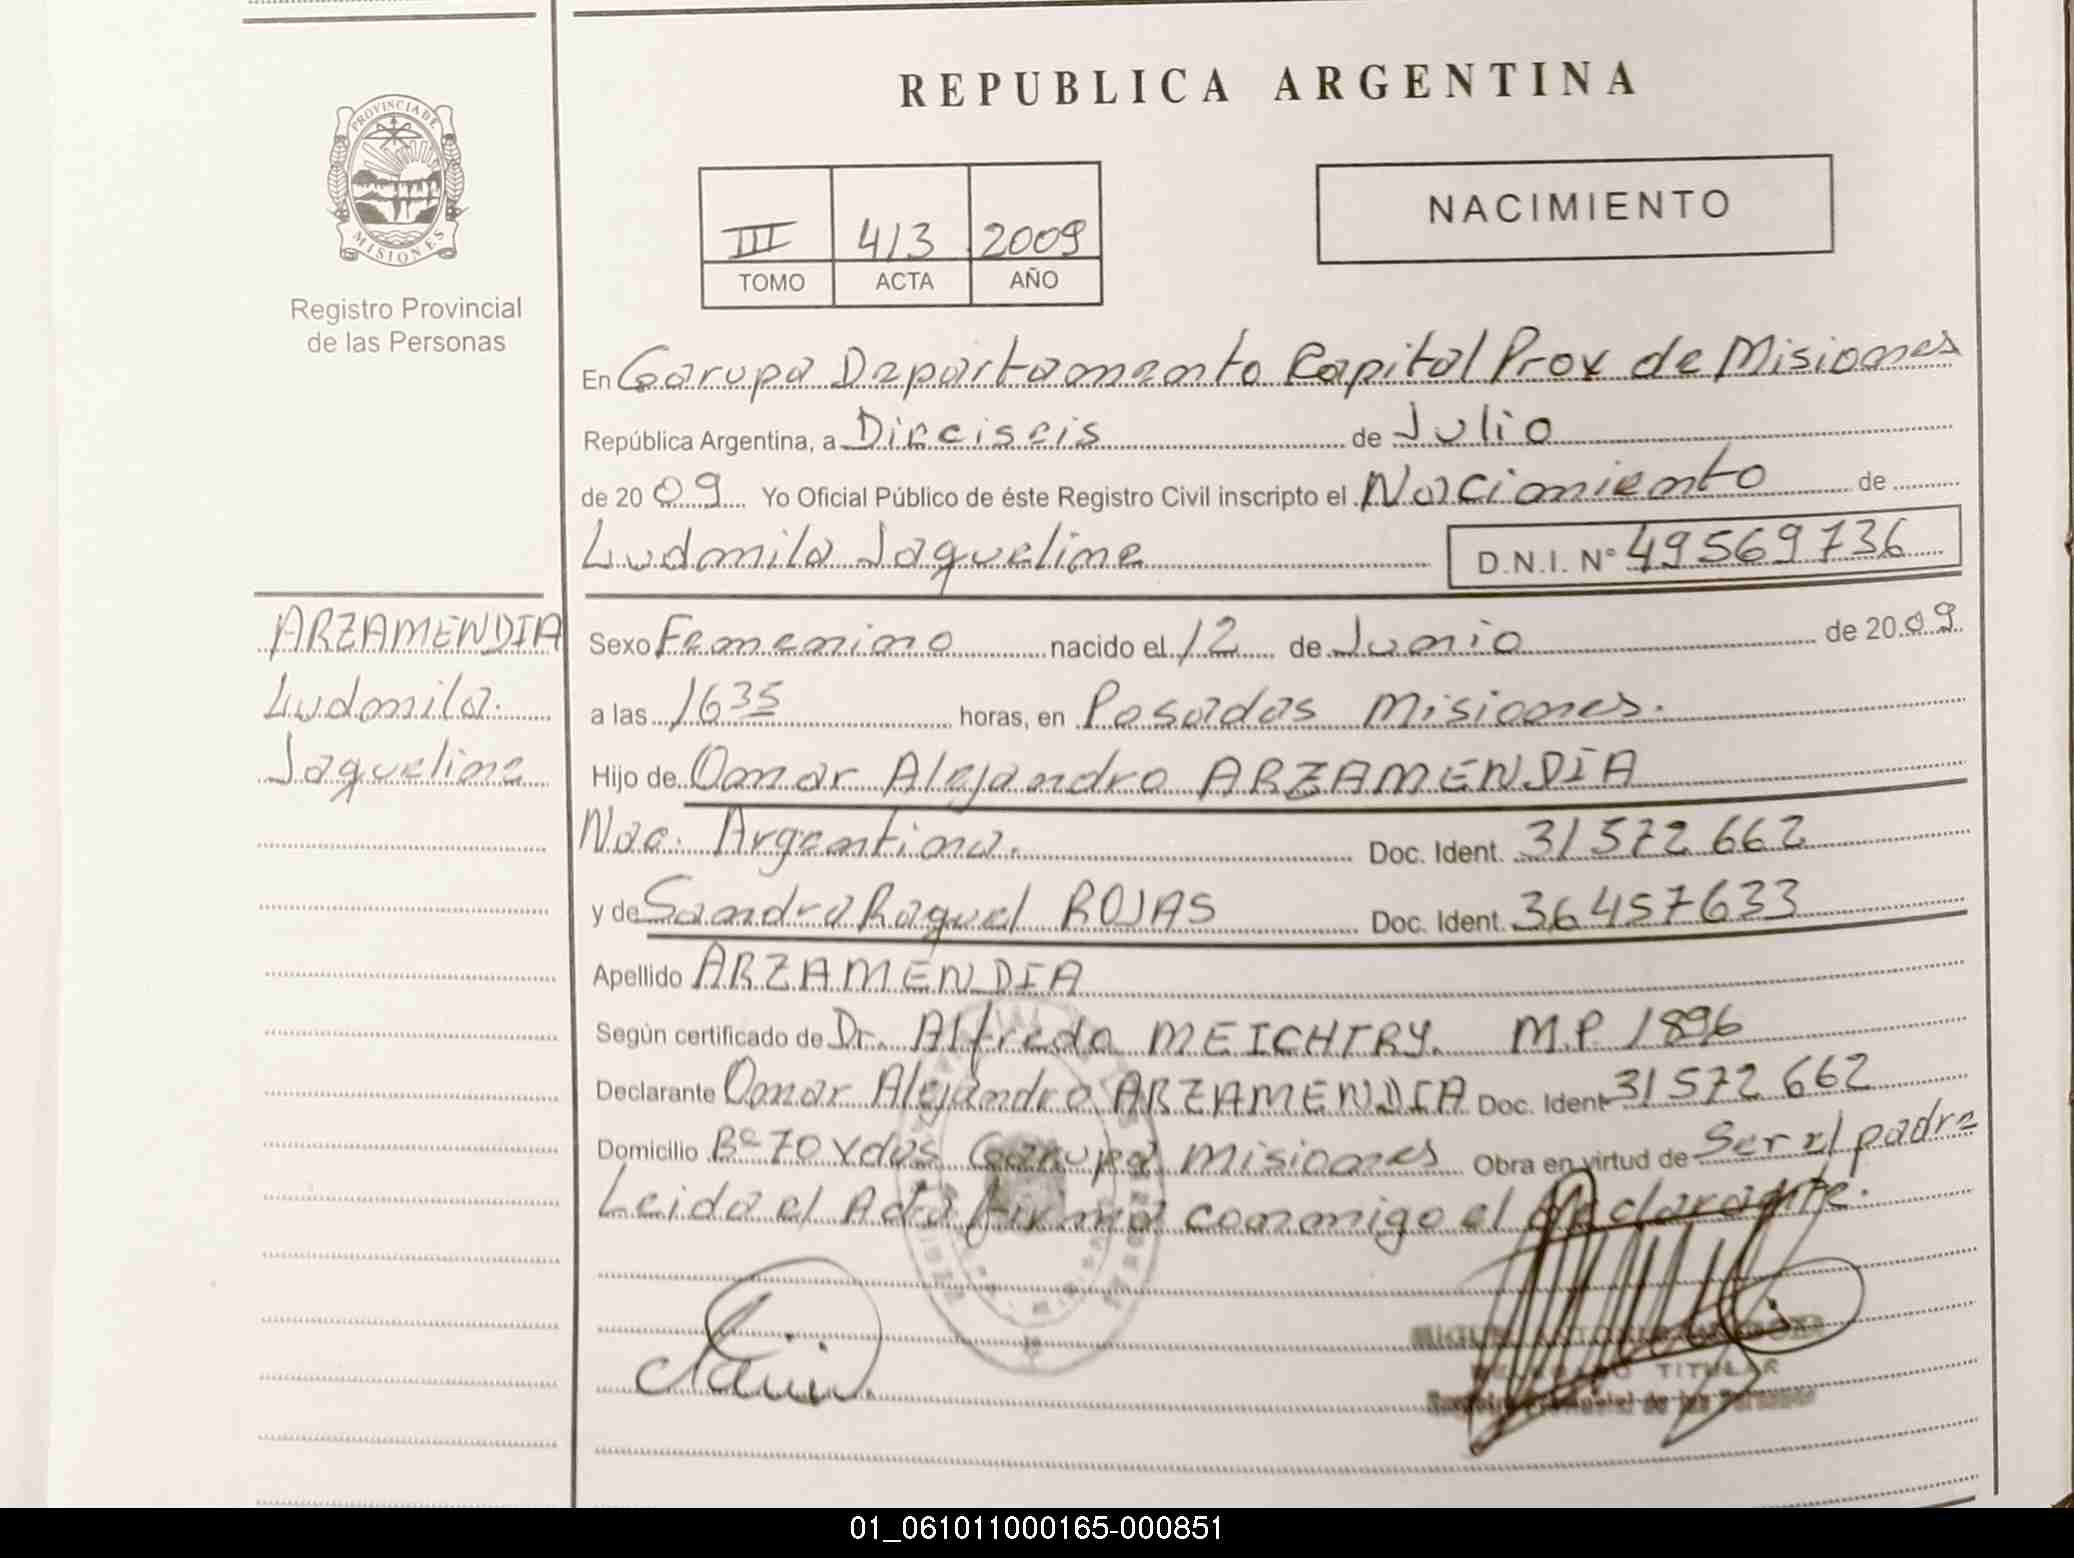 REPUBLICA ARGENTINA
PROVINCIA DE MISIONES
Registro Provincial
de las Personas
NACIMIENTO
III 413 2009
TOMO ACTA AÑO
En Garupa Departamento Capital Prov de Misiones
República Argentina, a Dieciseis de Julio
de 2009 Yo Oficial Público de éste Registro Civil inscripto el Nacimiento de
Ludmila Jaqueline D.N.I. Nº 49569736
ARZAMENDIA
Ludmila
Jaqueline
Sexo Femenino nacido el 12 de Junio de 2009
a las 1635 horas, en Posadas Misiones.
Hijo de Omar Alejandro ARZAMENDIA
Nac. Argentina. Doc. Ident. 31572662
y de Sandra Raquel ROJAS Doc. Ident. 36457633
Apellido ARZAMENDIA
Según certificado de Dr. Alfredo MEICHTRY. M.P. 1896
Declarante Omar Alejandro ARZAMENDIA Doc. Ident 31572662
Domicilio Bº 70 Vdas Garupa Misiones Obra en virtud de Ser el padre
Leida el Acta firma conmigo el declarante.
MIGUEL ANTONIO
TITULAR
de las Personas
01_061011000165-000851